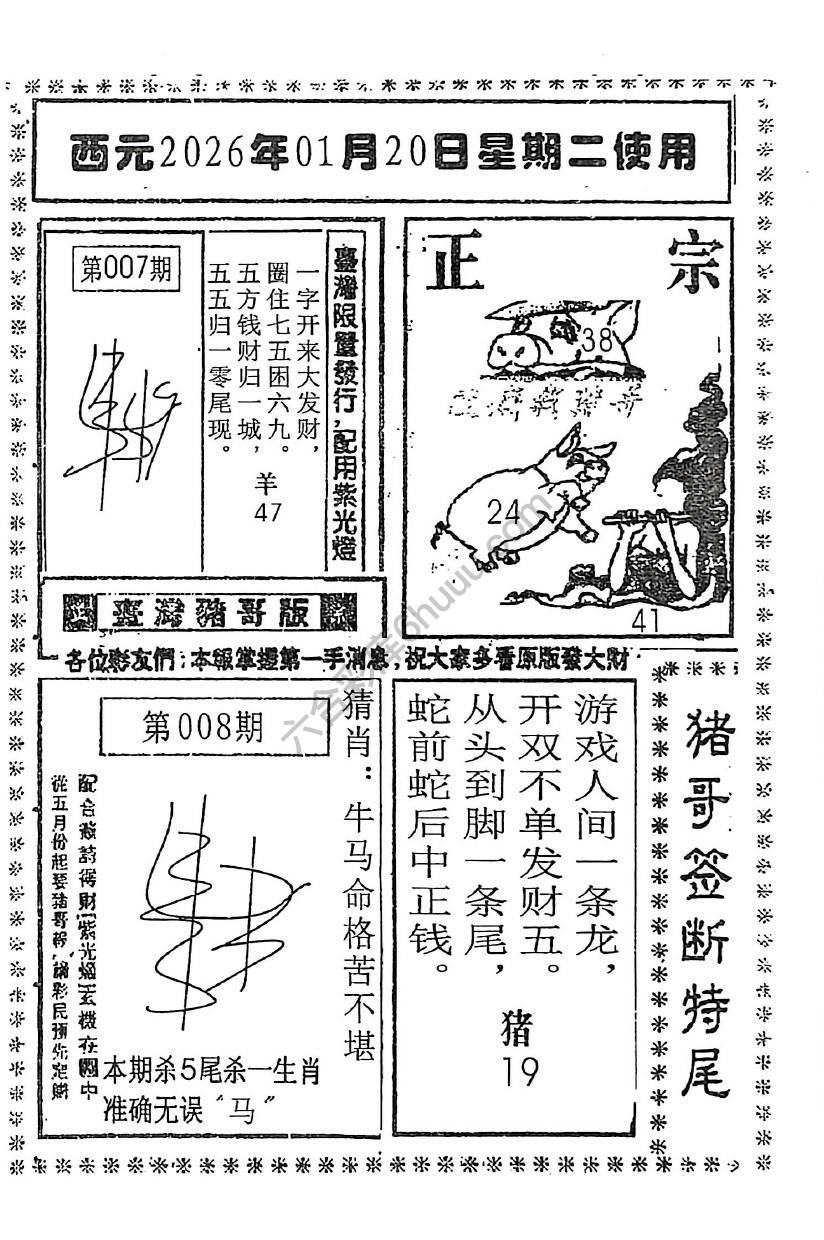 西元2026年01月20日星期二使用
第007期
一字开来大发财，
圈住七五困六九。
五方钱财归一城，
五五归一零尾现。
羊
47
臺灣限量發行，配用紫光燈
正宗
38
24
41
臺灣豬哥版
各位彩友們：本報掌握第一手消息，祝大家多看原版發大財
第008期
猜肖：牛马命格苦不堪
從五月份起要豬哥報，請彩民預先定購
本期杀5尾杀一生肖
准确无误“马”
游戏人间一条龙，
开双不单发财五。
从头到脚一条尾，
蛇前蛇后中正钱。
猪
19
猪哥签断特尾
六合彩库6huuu.com